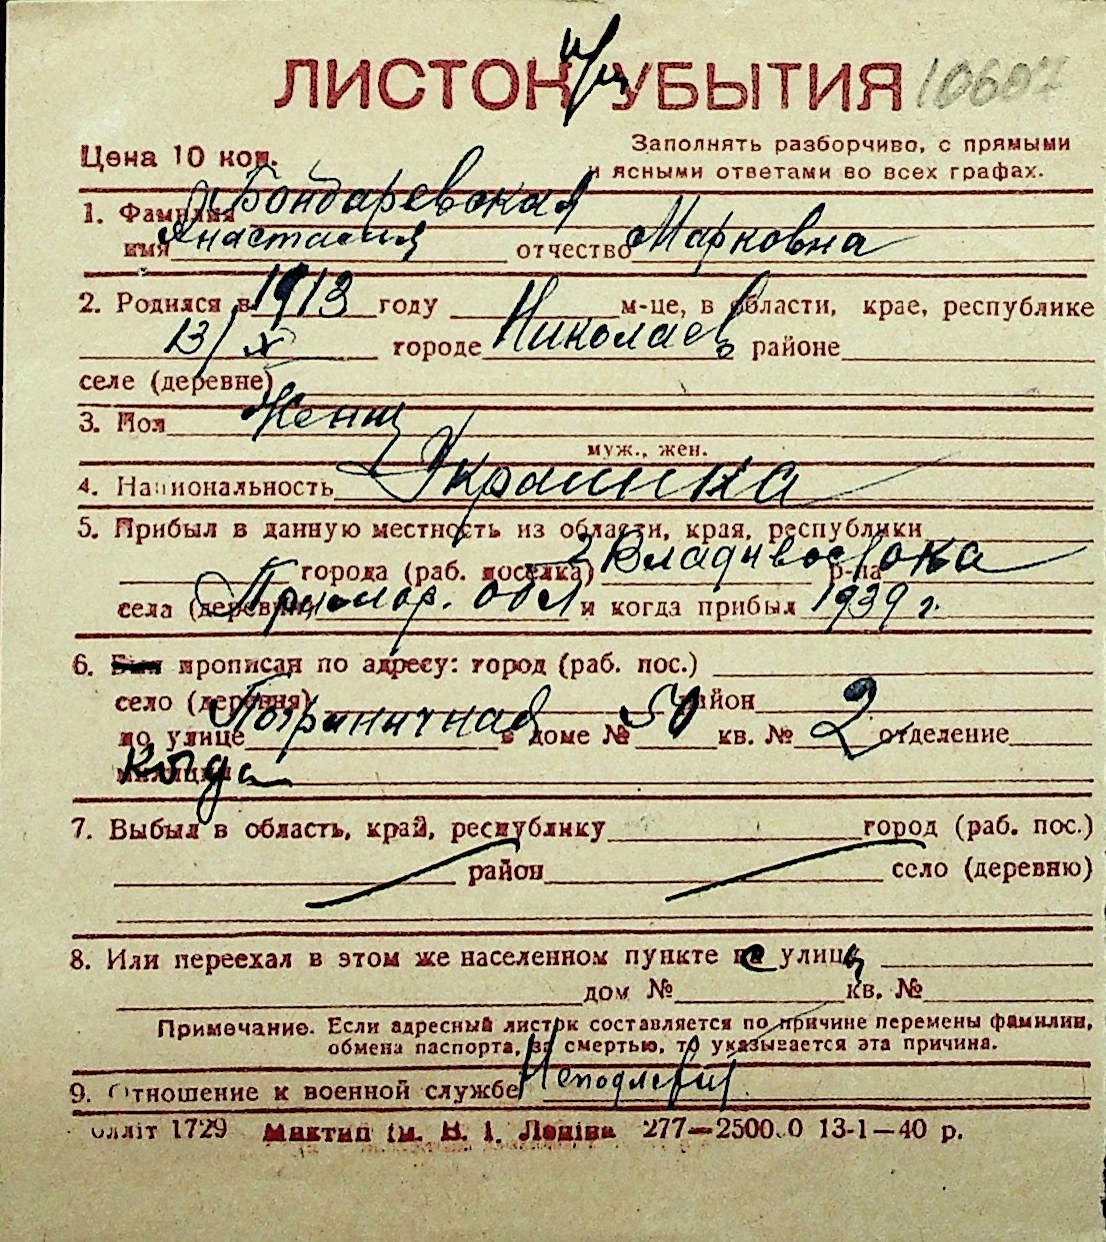 ЛИСТОК УБЫТИЯ 10607
Цена 10 коп. Заполнять разборчиво, с прямыми
и ясными ответами во всех графах.
1. Фамилия Бондаревская
имя Анастасия отчество Марковна
2. Родился в 1913 году м-це, в области, крае, республике
13/X городе Николаев районе
селе (деревне)
3. Пол Женщ
муж., жен.
4. Национальность Украинка
5. Прибыл в данную местность из области, края, республики
города (раб. поселка) г Владивостока р-на
села (деревни) Примор. обл и когда прибыл 1939 г.
6. Был прописан по адресу: город (раб. пос.)
село (деревня) район
по улице Пограничная в доме № 50 кв. № 2 отделение
милиции Когда
7. Выбыл в область, край, республику город (раб. пос.)
район село (деревню)
8. Или переехал в этом же населенном пункте с улиц
дом № кв. №
Примечание. Если адресный листок составляется по причине перемены фамилии,
обмена паспорта, за смертью, то указывается эта причина.
9. Отношение к военной службе
1729 Миктип ім. В. І. Леніна 277—25000 13-1—40 р.